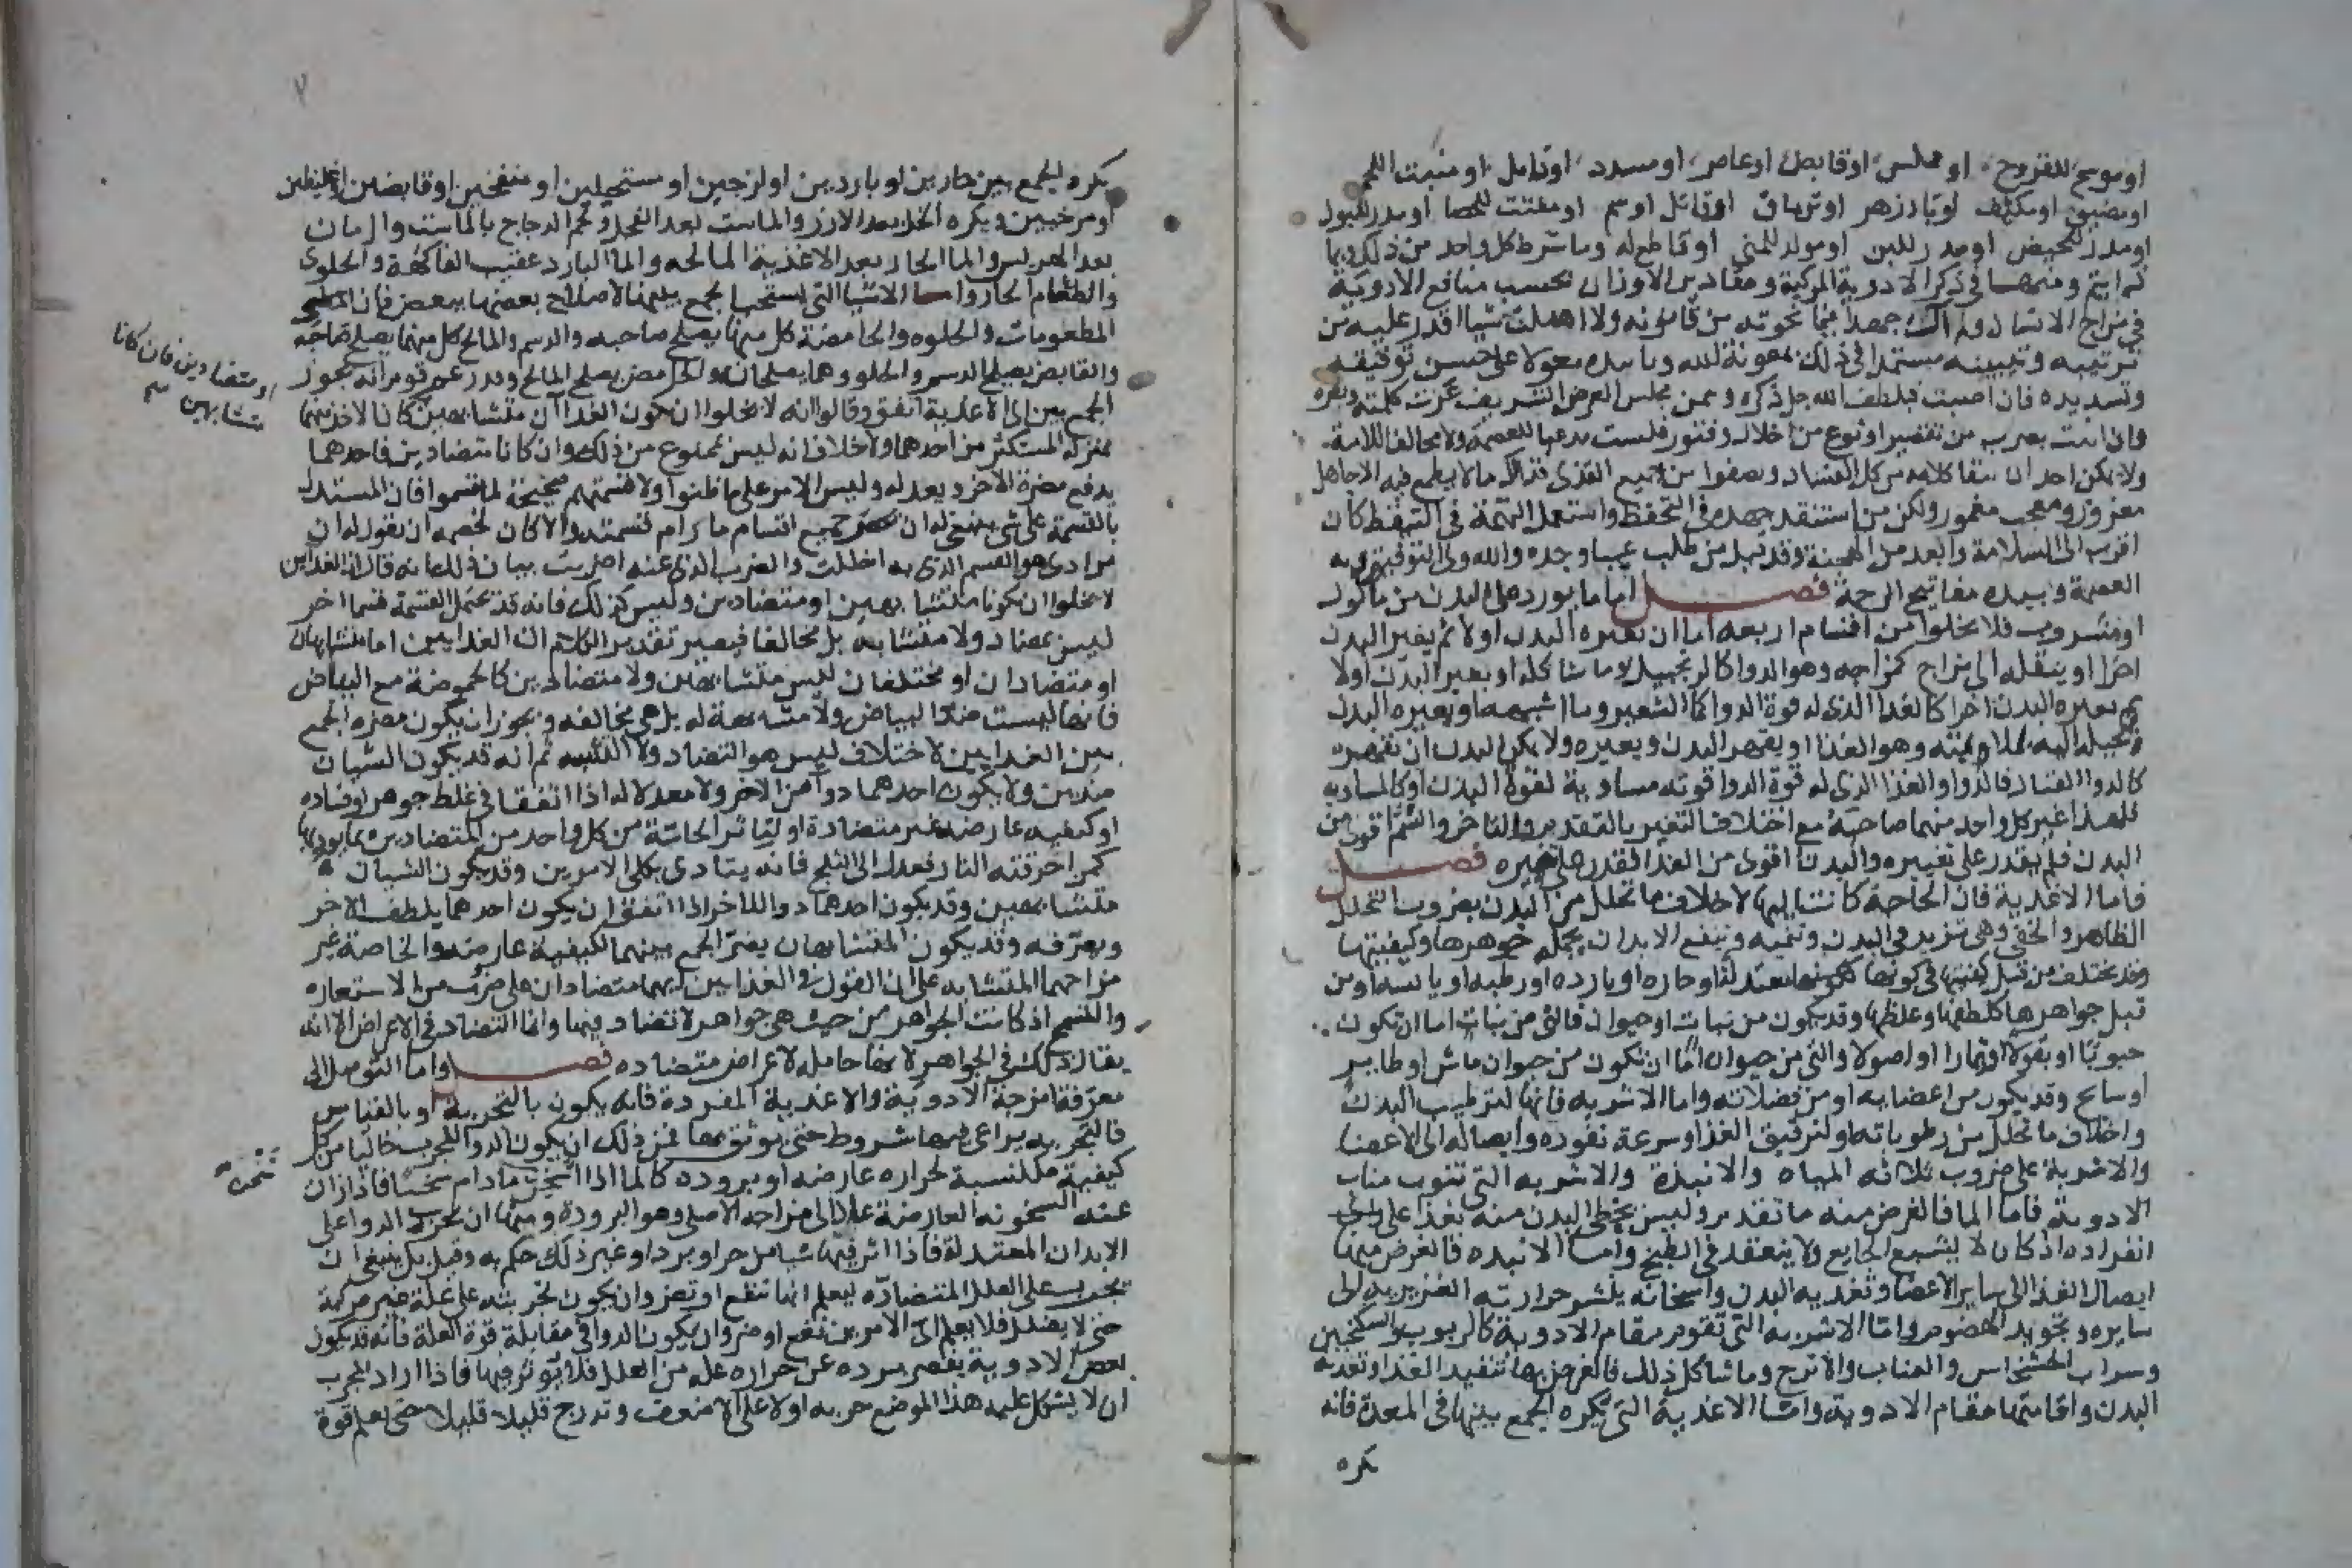 او موسخ للقروح او مملس او قابض او عاصر او مسدد او اوامل او منبت اللحم
او مضيق او مكثف او بادزهر او ترياق او قاتل او سم او مفتت للحصا او مدر للبول
او مدر للحيض او مدر للبن او مولد للمني او قاطع له وما شرط كل واحد من ذلك وبما
في ذكر الادوية المركبة ومقادير الاوزان بحسب منافع الادوية
في مزاج الانسان من قانونه ولا اهملت شيا اقدر عليه من
ترتيبه وتبيينه مستمدا في ذلك بمعونة الله وتاييده معولا على حسن توفيقه
وتسديده فان اصبت فبلطف الله جل ذكره ويمن مجلس العرض الشريف
فان اتيت بضرب من تقصير او نوع من اخلال وفتور فلست مدعيا للعصمة ولا مخالفا للامة
ولا يمكن احد ان كلامه من كل الفساد ويصفوا من جميع القذى فذاك ما لا يطمع فيه الا جاهل
مغرور ومعجب مغمور ولكن من استنفد جهده في التحفظ واستعمل الهمة في التيقظ كان
اقرب الى السلامة وابعد من الهجنة وقد قيل من طلب عيبا وجده والله ولي التوفيق وبه
العصمة وبيده مفاتيح الرحمة فصل اما ما يورد على البدن من ماكول
او مشروب فلا يخلوا من اقسام اربعة اما ان يغيره البدن اولا ثم يغير البدن
اخرا او ينقله الى مزاج كمزاجه وهو الدوا كالزنجبيل وما شاكله او يغير البدن اولا
ثم يغيره البدن اخرا كالغذا الذي له قوة الدوا كما الشعير وما اشبهه او يغيره البدن
ويحيله اليه وهو الغذا او يقهر البدن ويغيره ولا يمكن البدن ان يقهره
كالدوا القتال فالدوا والغذا الذي له قوة الدوا قوته مساوية لقوة البدن او كالمساويه
فلهذا غير كل واحد منهما صاحبه مع اختلاف التغير بالتقديم والتاخر والسم اقوى من
البدن فلم يقدر على تغييره والبدن اقوى من الغذا فقدر على تغييره فصل
فاما الاغذية فان الحاجة كانت اليها لاخلاف ما تحلل من البدن بضروب التحلل
الظاهر والخفي وهي تزيد في البدن وتنميه وينفع الابدان بجملة جوهرها وكيفيتها
وقد يختلف من قبل كيفيتها في كونها معتدلة او حاره او بارده او رطبه او يابسه او من
قبل جواهرها كلطفها وغلظها وقد يكون من نبات او حيوان فالتي من نبات اما ان تكون
حبوبا او بقولا او ثمارا او اصولا والتي من حيوان اما ان تكون من حيوان ماش او طاير
او سابح وقد يكون من اعضايه او من فضلاته واما الاشربه فانها لترطيب البدن
واخلاف ما تحلل من رطوباته ولترقيق الغذا وسرعة نفوذه وايصاله الى الاعضا
والاشربة على ضروب ثلاثه المياه والانبذة والاشربه التي تنوب مناب
الادوية فاما الما فالغرض منه ما تقدم وليس يحظى البدن منه بغذا على
انفراده اذ كان لا يشبع الجايع ولا ينعقد في الطبخ واما الانبذه فالغرض منها
ايصال الغذا الى ساير الاعضا وتغذية البدن واسخانه ينشر حرارته الغريزيه الى
سايره وتجويد الهضوم واما الاشربه التي تقوم مقام الادوية كالربوب والسكنجبين
وشراب الخشخاش والعناب والاترج وما شاكل ذلك فالغرض بها تنفيذ الغذا وتغذيه
البدن واقامتها مقام الادوية واما الاغذية التي يكره الجمع بينها في المعدة فانه
يكره
٧
يكره الجمع بين حارين او باردين او لزجين او مستحيلين او منفخين او قابضين او غليظين
او مرخيين ويكره الخل بعد الارز والماست بعد الفجل ولحم الدجاج بالماست والرمان
بعد الهريس والما الحار بعد الاغذية المالحه والما البارد عقيب الفاكهة والحلوى
والطعام الحار واما الاشيا التي يستحب الجمع بينها لاصلاح بعضها ببعض فان
المطعومات والحلوه والحامضة كل منها يصلح صاحبه والدسم والمالح كل منهما يصلح صاحبه
والقابض يصلح الدسم والحلو وهما يصلحانه والحامض يصلح المالح وقد زعم قوم انه يجوز
الجمع بين اي الاغذية اتفق وقالوا انه لا يخلوا ان يكون الغذاآن متشابهين كان الاخذ منهما
بمنزلة المستكثر من احدهما ولا خلاف انه ليس بممنوع من ذلك وان كانا متضادين فاحدهما
يدفع مضرة الاخر ويعدله وليس الامر على ما ظنوا ولا قسمتهم صحيحة لما قسموا فان المستدل
بالقسمة على شي ينبغي له ان يحصر جميع اقسام ما رام قسمته والا كان لخصمه ان يقول له ان
مرادي هو القسم الذي به اخللت والضرب الذي عنه اضربت بيان ذلك انه قال ان الغذاين
لا يخلوا ان يكونا متشابهين او متضادين وليس كذلك فانه قد يحتمل القسمة قسما اخر
ليس بمضاد ولا متشابه بل مخالفا فيصير تقدير الكلام ان الغذايين اما متشابهان
او متضادان او مختلفان ليس متشابهين ولا متضادين كالحموضة مع البياض
فانها ليست ضدا للبياض ولا مشبهة له بل هي مخالفه ويجوز ان يكون مضرة الجمع
بين الغذايين لاختلاف ليس هو التضاد ولا التشبه ثم انه قد يكون الشيان
ضدين ولا يكون احدهما دوآ من الاخر ولا معدلا له اذا اتفقا في غلظ جوهر او فساده
او كيفيه عارضه غير متضادة او لتاثر الحاسة من كل واحد من المتضادين
كمن احرقته النار فعدل الى الثلج فانه يتاذى بكلى الامرين وقد يكون الشيان
متشابهين وقد يكون احدهما دوا للاخر اذا اتفق ان يكون احدهما يلطف الاخر
ويعرفه وقد يكون المتشابهان يضر الجمع بينهما لكيفية عارضه او لخاصة غير
مزاجهما المتشابه على ان القول في الغذايين انهما متضادان على ضرب من الاستعاره
والتسمح اذ كانت الجواهر من حيث هي جواهر لا تضاد بينها وانما التضاد في الاعراض الا انه
يقال ذلك في الجواهر لانها حامله لاعراض متضاده فصل واما التوصل الى
معرفة امزجة الادوية والاغذية المفردة فانه يكون بالتجربة او بالقياس
فالتجربه يراعى فيها شروط حتى يوثق بها فمن ذلك ان يكون الدوا المجرب خاليا من كل
كيفية مكتسبة لحراره عارضه او بروده كالما اذا اسخن ما دام سخنا فاذا زال
عنه السخونه العارضة عاد الى مزاجه الاصلي وهو البرودة ومنها ان يجرب الدوا على
الابدان المعتدلة فاذا اثر فيها شيا من حر او برد او غير ذلك حكم به وقيل بل ينبغي ان
يجرب على العلل المتضاده ليعلم ايها تنفع او تضر وان يكون تجربته على علة غير مركبة
حتى لا يضلل فلا يعلم اي الامرين نفع او ضر وان يكون الدوا في مقابلة قوة العلة فانه قد يكون
بعض الادوية يقصر برده عن حراره علة من العلل فلا يوثر فيها فاذا اراد المجرب
ان لا يشكل عليه هذا الموضع جربه اولا على الاضعف وتدرج قليلا قليلا حتى يعلم قوة
او متضادين فان كانا
متشابهين